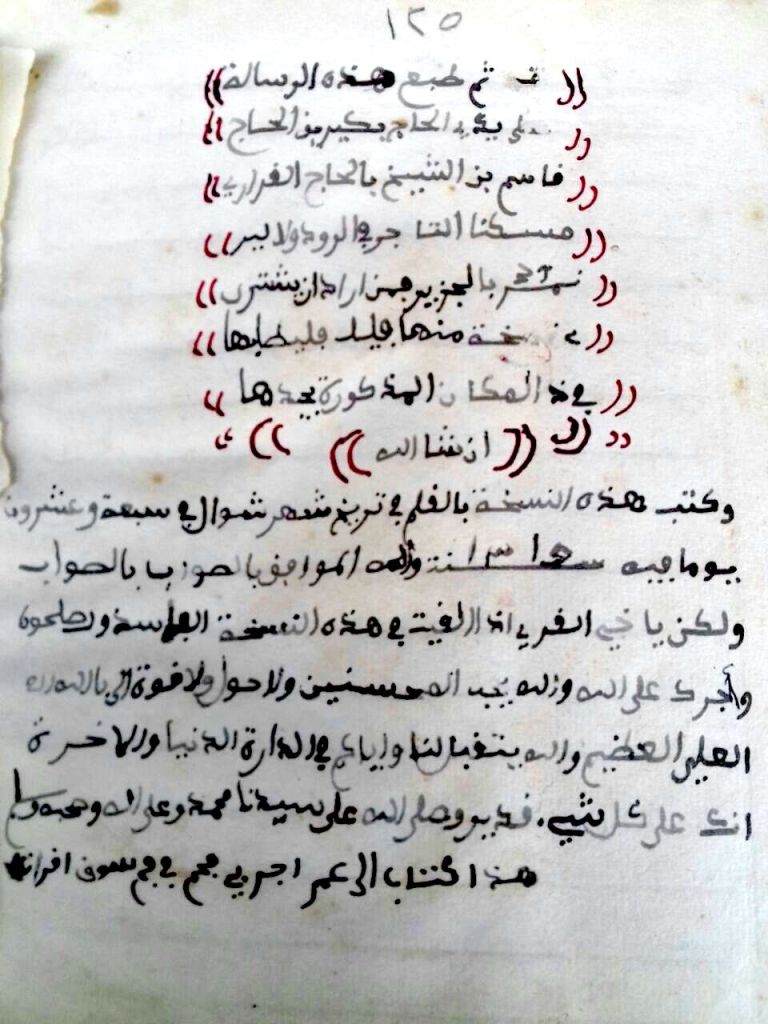 ١٢٥
(( تم طبع هذه الرسالة ))
(( على يد الحاج بكير بن الحاج ))
(( قاسم بن الشيخ بالحاج الفراري ))
(( مسكنا التاجر في الرود ولا لير ))
(( نمر بالجزير فمن اراد ان يشتري ))
(( نسخة منها فليطلبها ))
(( في ذ المكان المذكورة يجدها ))
(( ان شا الله ))
وكتب هذه النسخة بالقلم في تريخ شهر شوال في سبعة وعشرون
يوما فيه سنة والله الموافق بالصواب
ولكن يا خي القري اذا الفيت في هذه النسخة الفاسد وتصلحون
وأجرك على الله والله يحب المحسنين ولا حول ولا قوة الى بالله
العلي العظيم والله يتقبل لنا واياكم في الدارة الدنيا والاخرة
انك على كل شيء قدير وصلى الله على سيدنا محمد وعلى اله وصحبه
هذا كتاب الى عمر